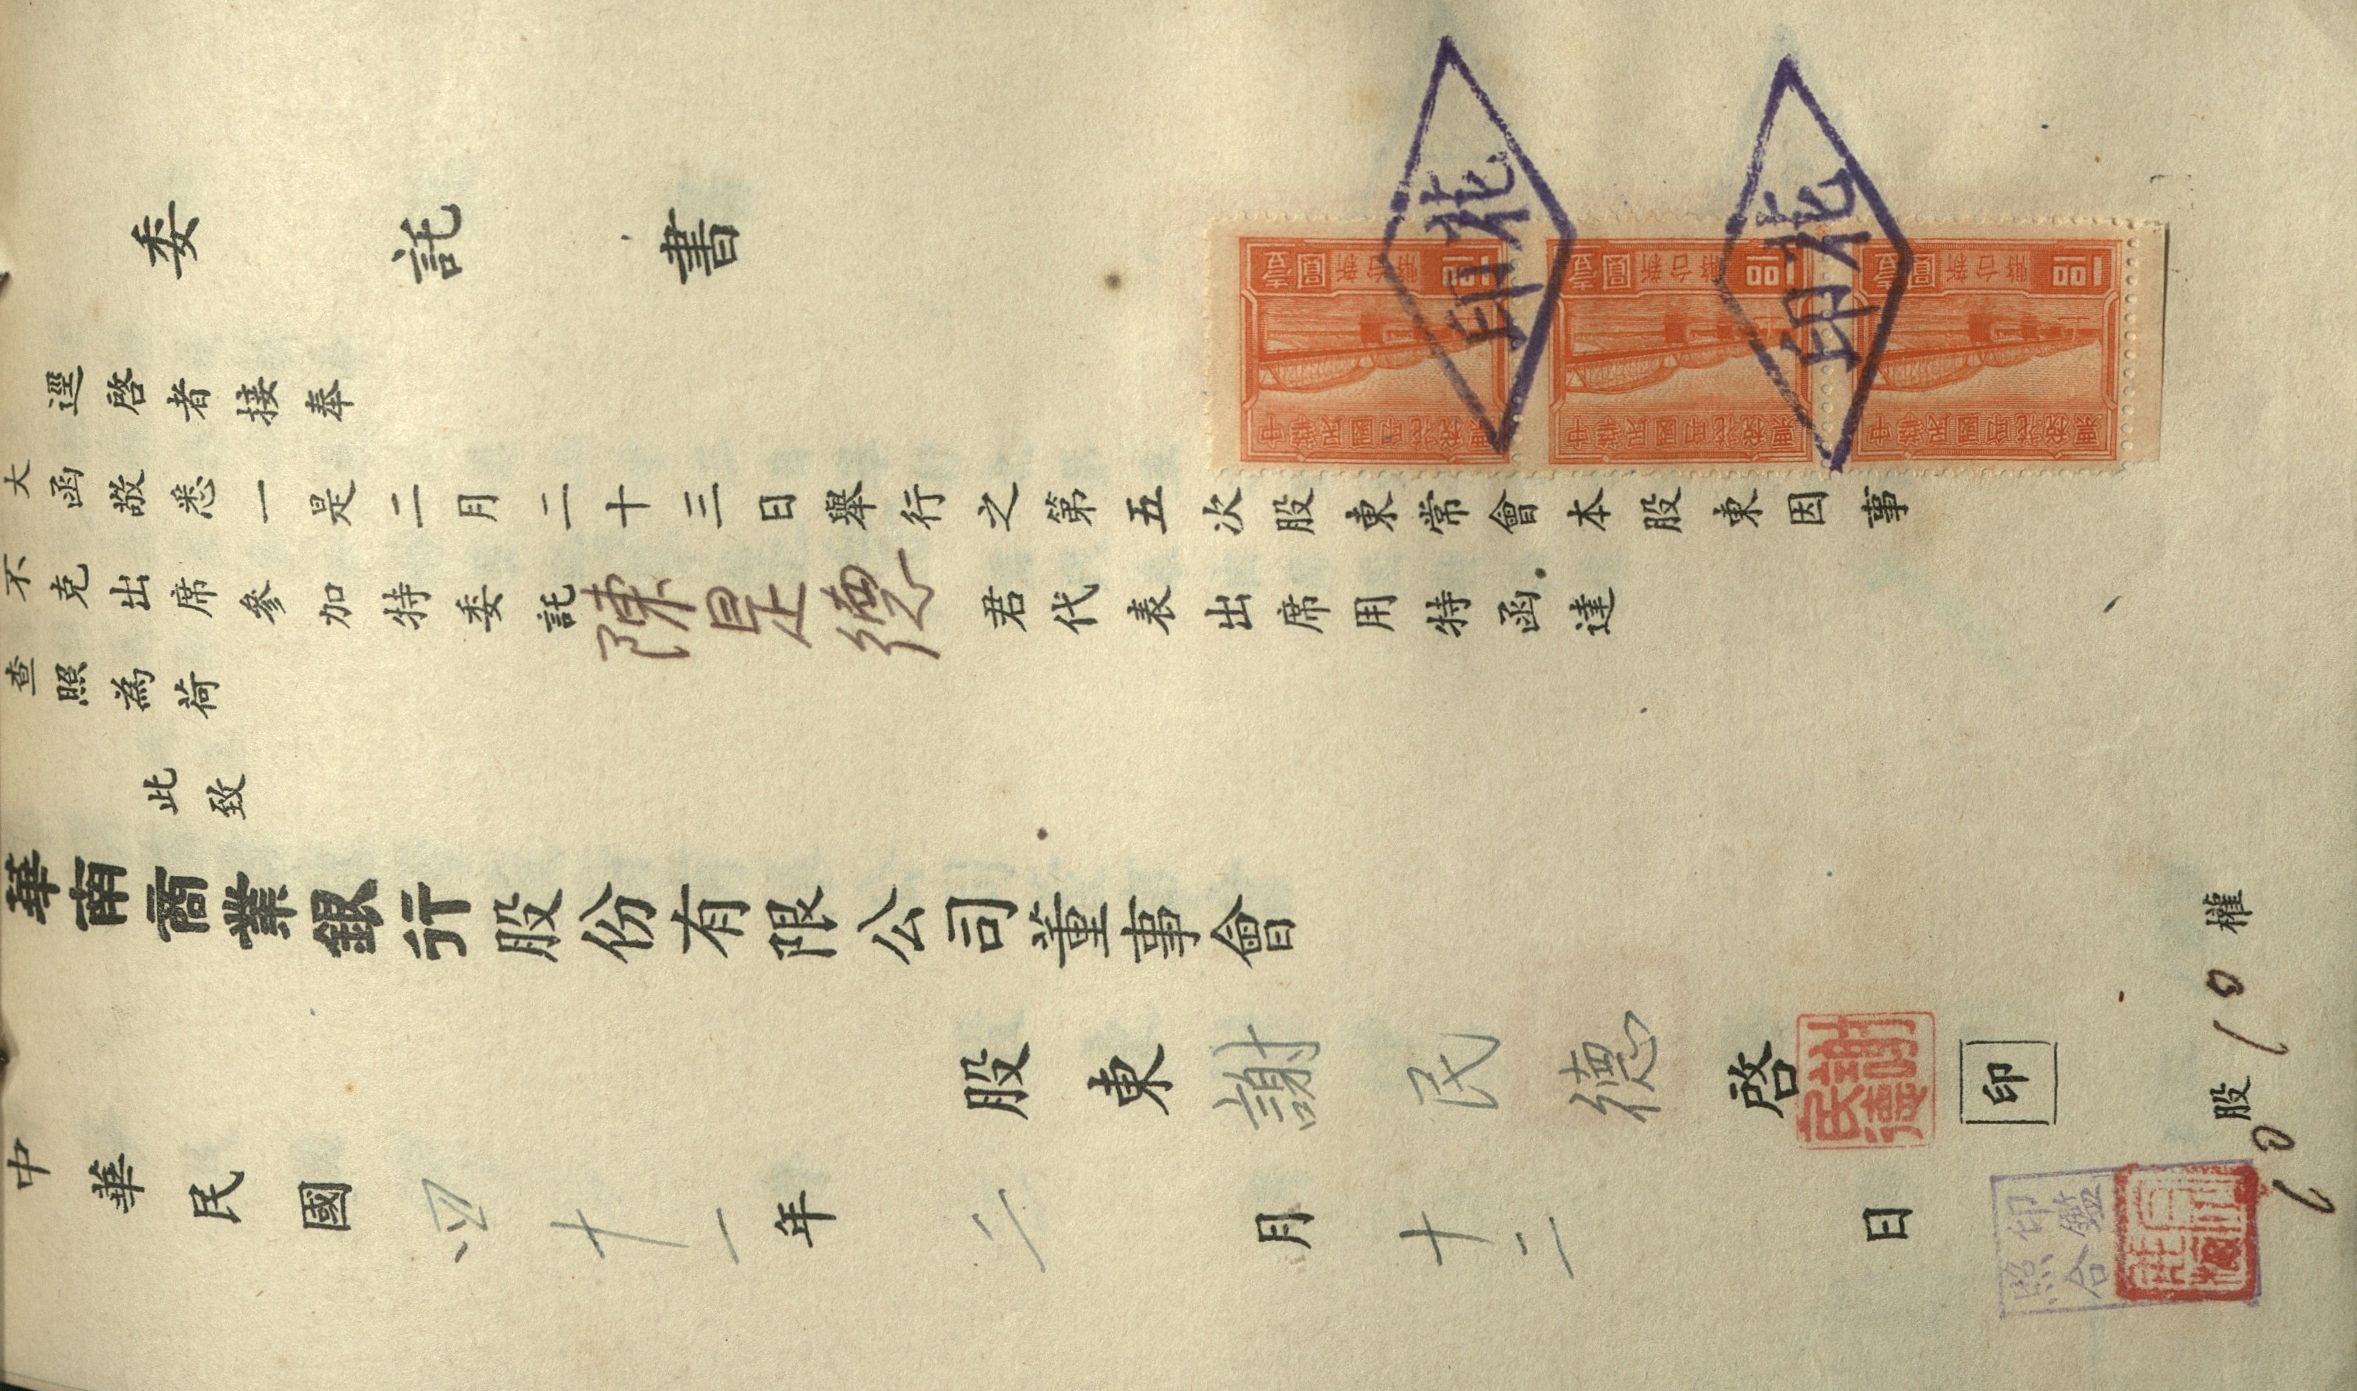 委託書
逕啓者接奉
大函敬悉一是二月二十三日舉行之第五次股東常會本股東因事
不克出席參加特委託陳是德君代表出席用特函達
查照為荷
此致
華南商業銀行股份有限公司董事會
股東謝民德啓印
謝民德
中華民國四十一年二月十二日
股10權
印鑑
照合
中華民國印花稅票
新台幣
壹圓
1 00
中華民國印花稅票
新台幣
壹圓
1 00
中華民國印花稅票
新台幣
壹圓
1 00
印花
印花